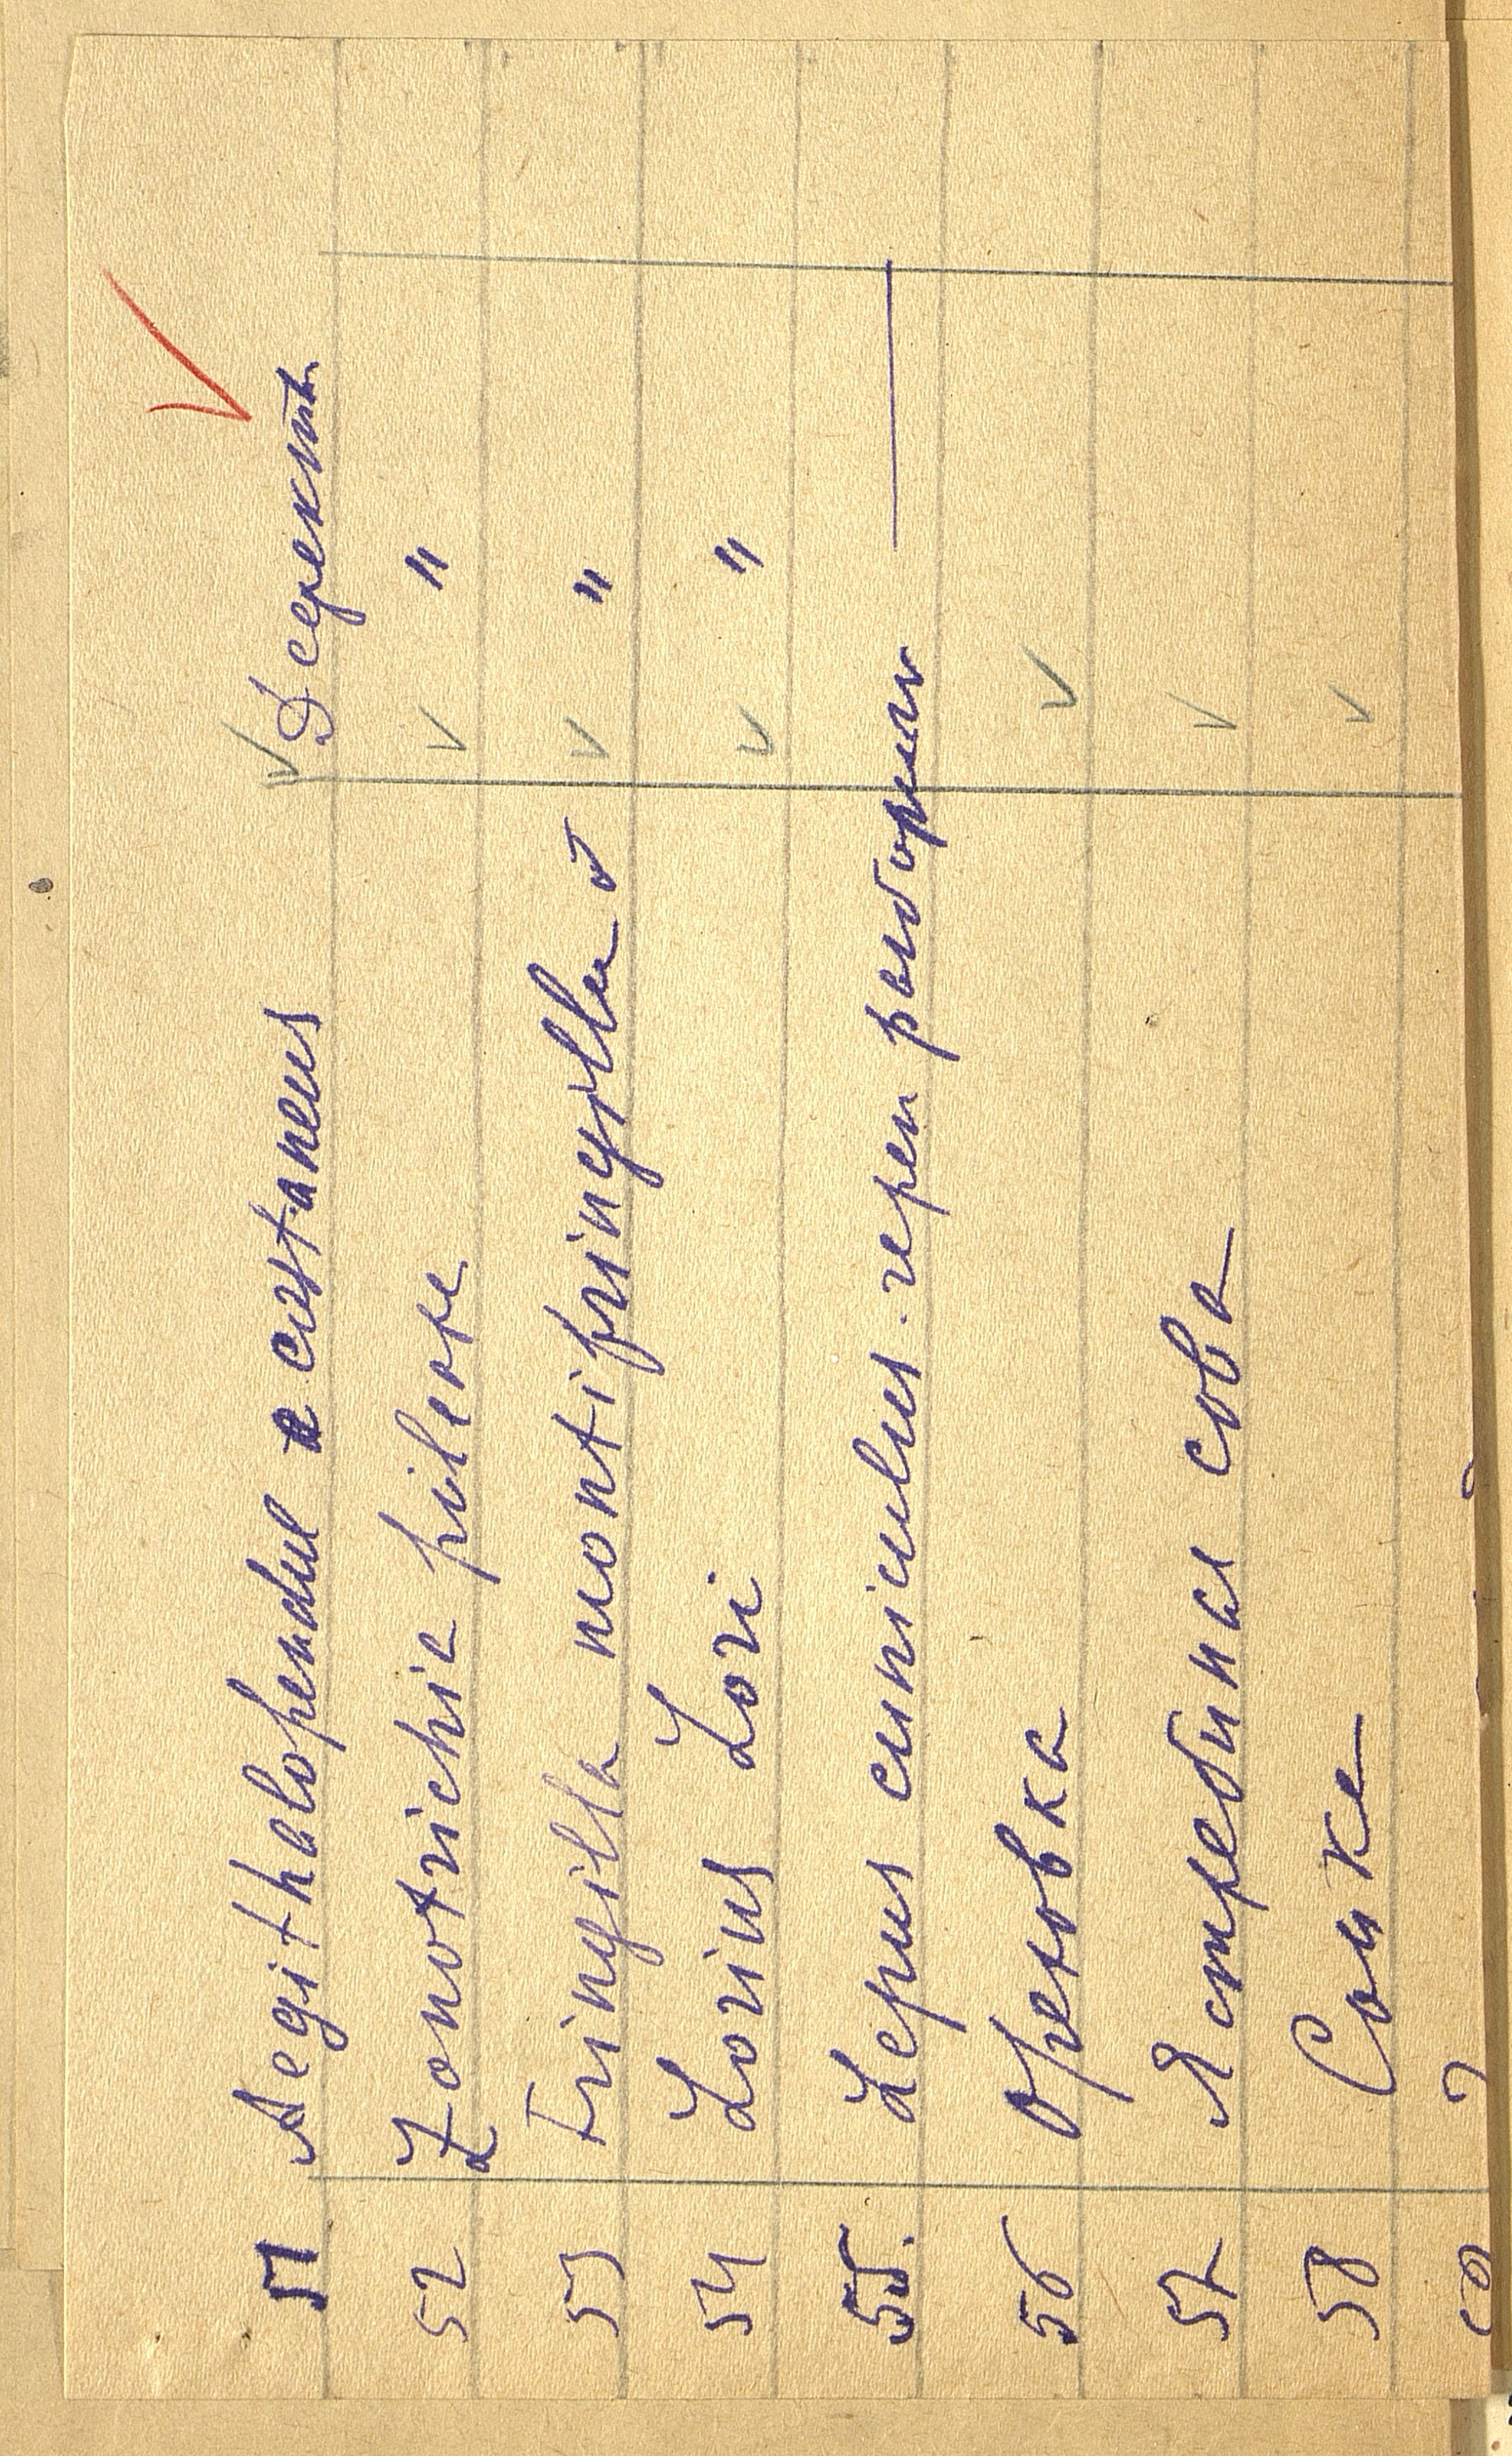 51 Aegithalopendul castaneus Дефектн.
52 Zonotrichia pileata "
53 Fringilla montifringilla ♂ "
54 Lorius Lori "
55. Lepus cuniculus. череп
56 Ореховка
57 Ястребиная сова
58 Сойка
59